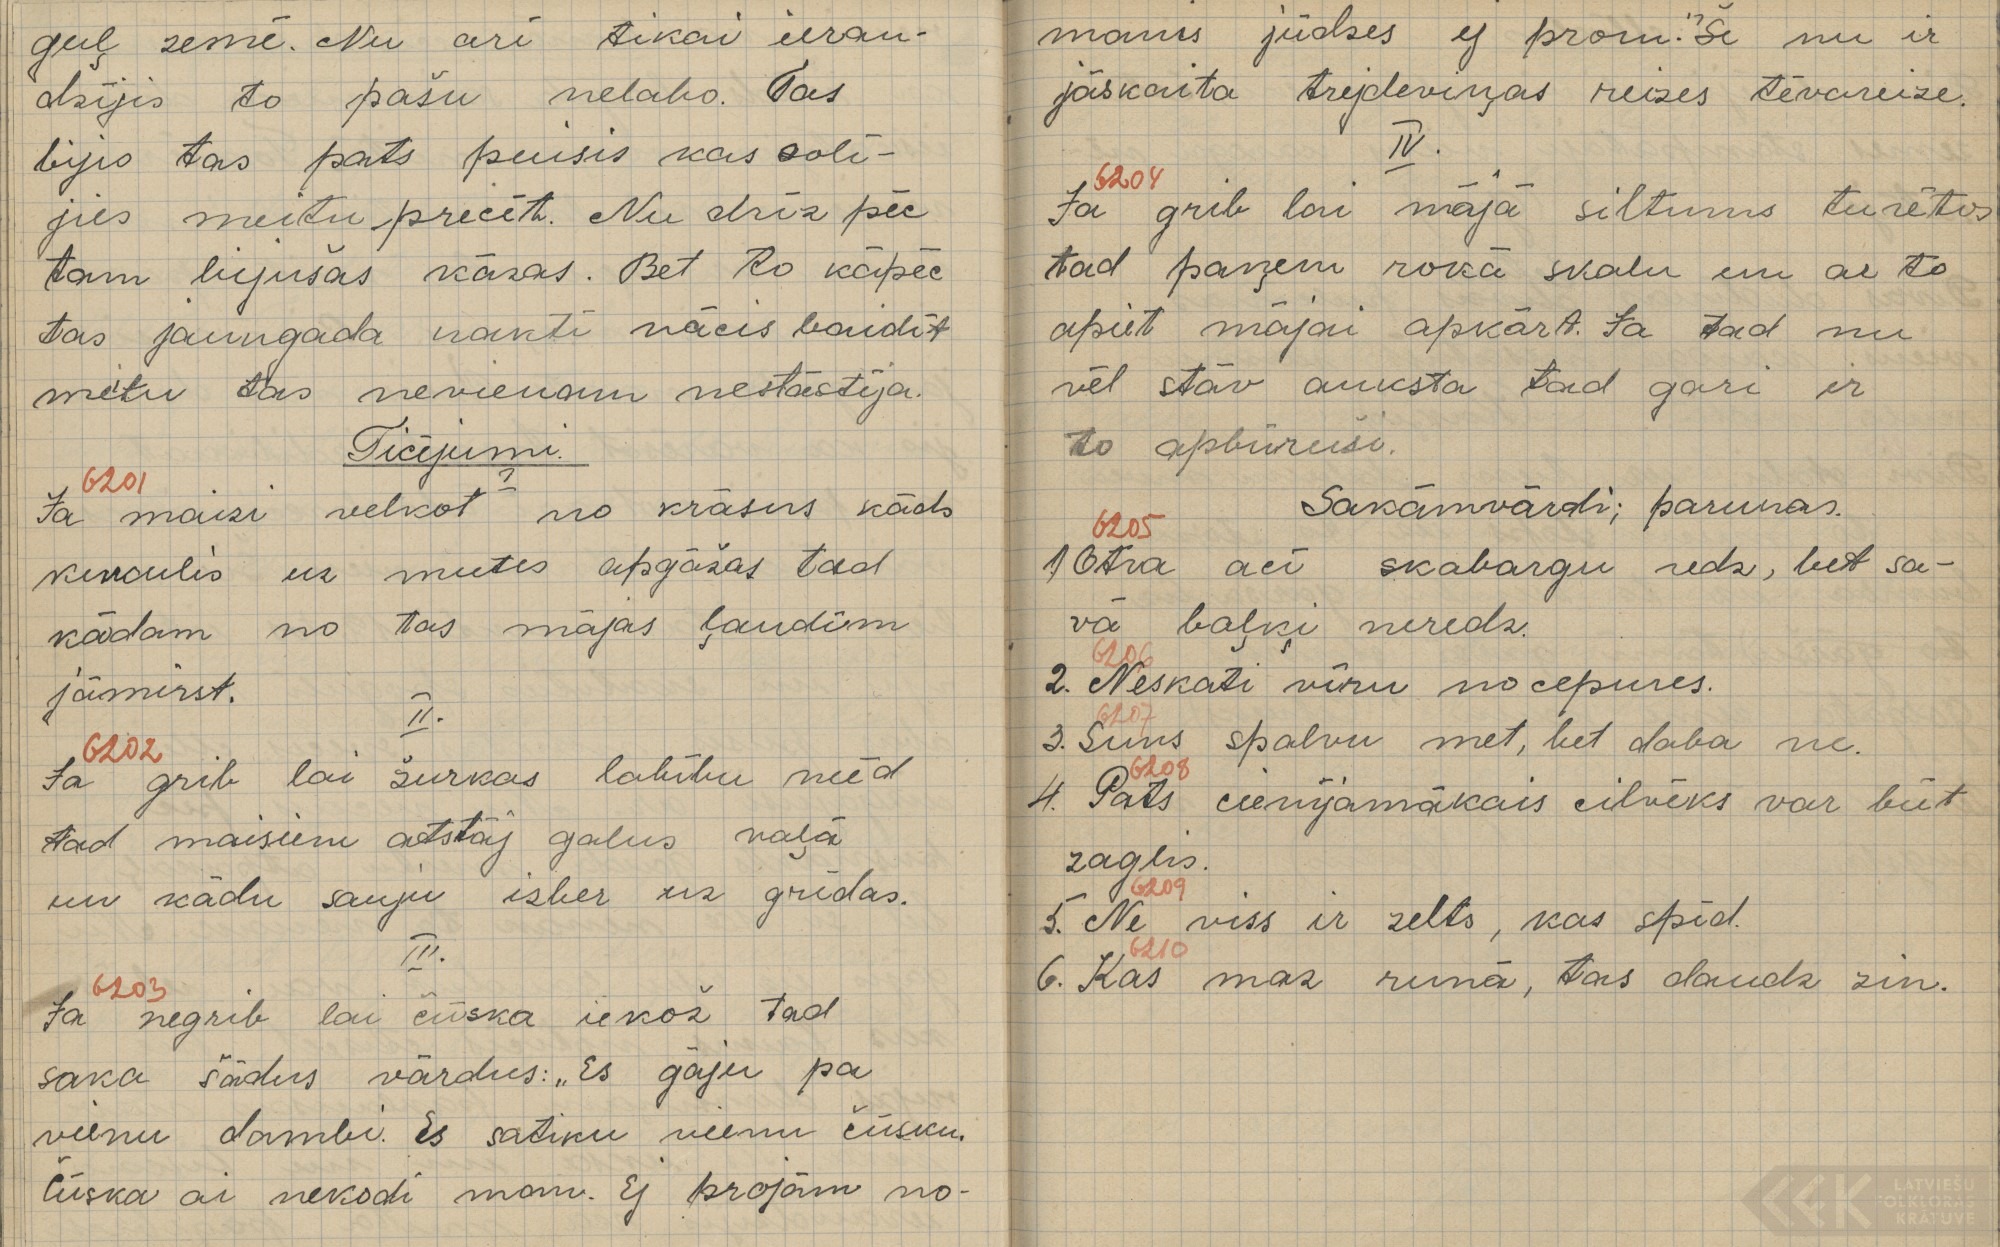 guļ zemē. Nu arī tikai ieran-
dzījis to pašu nelabo. Tas
bijis tas pats puisis kas solī-
jies meitu precēt. Nu drīz pēc
tam bijušas kāzas. Bet ko kāpēc
tas jaungada naktī nācis baidīt
meitu tas nevienam nestāstija.
Ticējumi.
6201
Ja maizi velkot no krāsns kāds
kukulis uz mutes apgāžas tad
kādam no tās mājas ļaudīm
jāmirst.
II.
6202
Ja grib lai žurkas labību neēd
tad maisiem atstāj galus vaļā
un kādu sauju izber uz grīdas.
III.
6203
Ja negrib lai čūska iekož tad
saka šādus vārdus: „Es gāju pa
vienu dambi. Es satiku vienu čūsku.
Čūska ai nekodi man. Ej projām no-
manis jūdzes ej prom." Še nu ir
jāskaita trejdeviņas reizes tēvareize.
IV.
6204
Ja grib lai mājā siltums turētos
tad paņem rokā skalu un ar to
apiet mājai apkārt. Ja tad nu
vēl stāv auksta tad gari ir
to apbūruši.
Sakāmvārdi; parunas.
6205
1) Otra acī skabargu redz, bet sa-
vā baļķi neredz.
6206
2. Neskati vīru no cepures.
6207
3. Suns spalvu met, bet daba ne.
6208
4. Pats cienījamākais cilvēks var būt
zaglis.
6209
5. Ne viss ir zelts, kas spīd.
6210
6. Kas maz runā, tas daudz zin.
LATVIEŠU
FOLKLORAS
KRĀTUVE